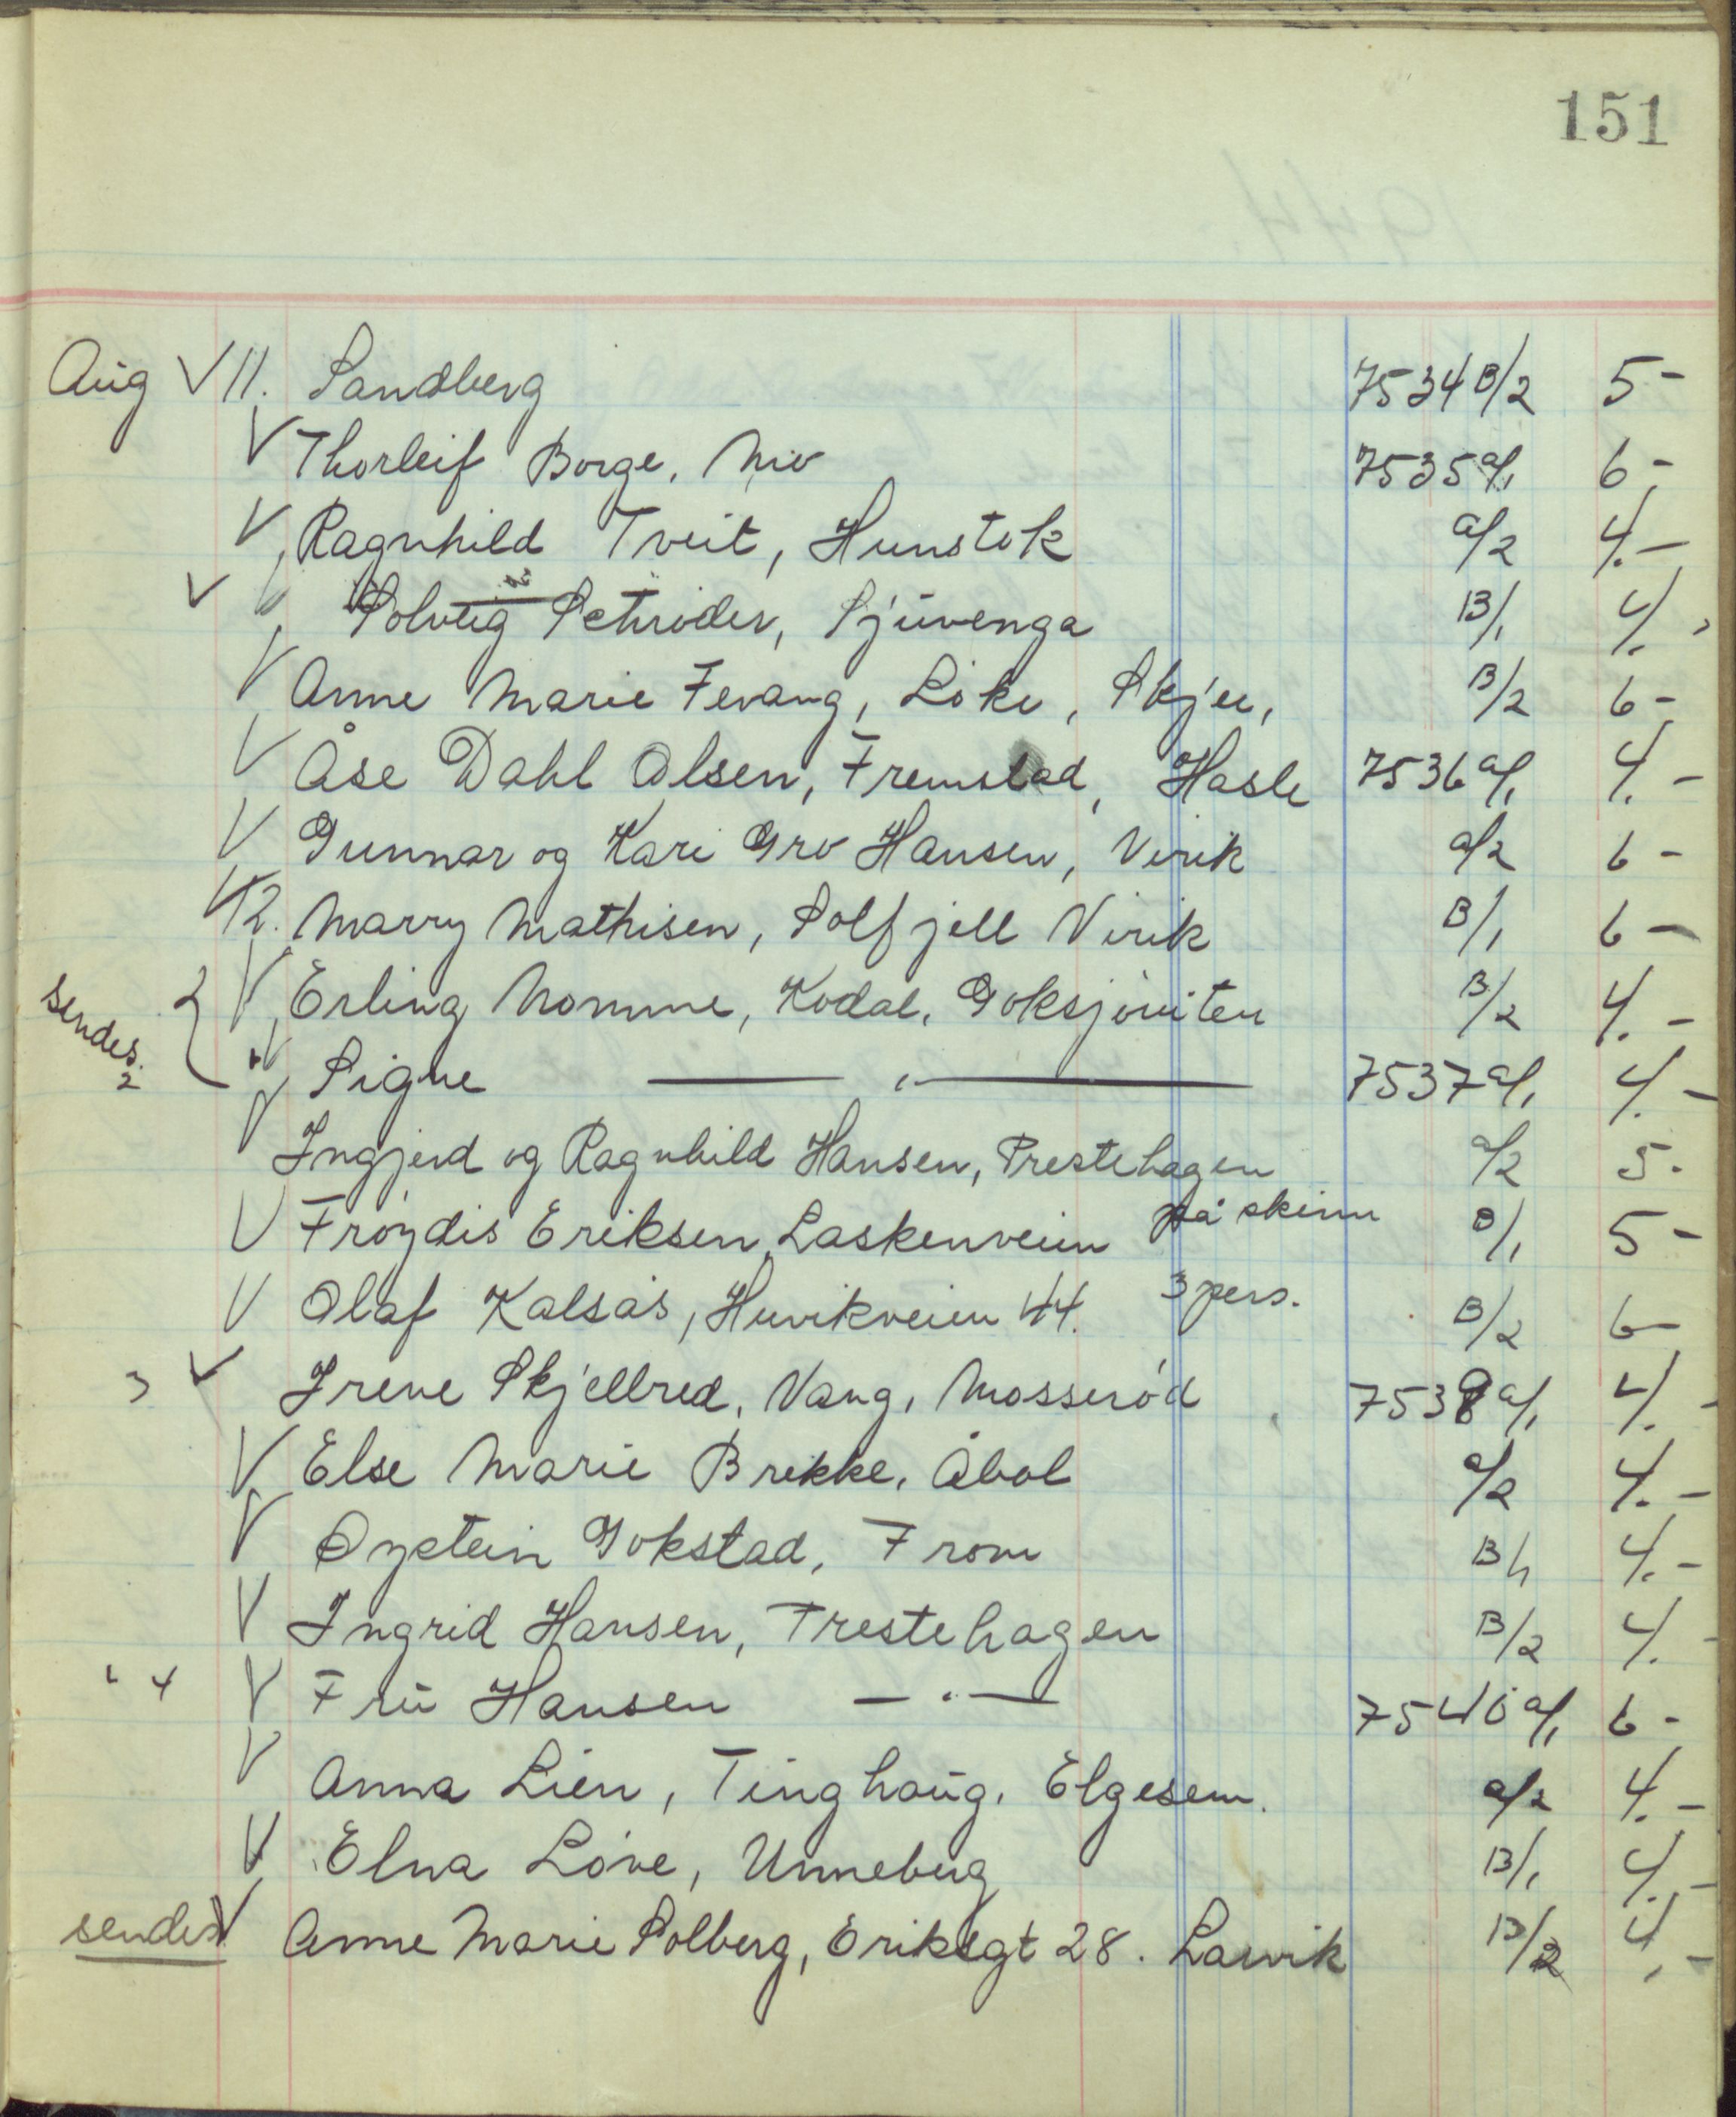 151
Aug V 11. Sandberg 7534 B/2 5-
V Thorleif Borge, Mo 7535 a/1 6-
V Ragnhild Tveit, Hunstok a/2 4.-
V Solveig Schrøder, Sjuvenga B/1 4.-
V Anne Marie Fevang, Løke, Skjee, B/2 6-
V Åse Dahl Olsen, Fremstad, Hasle 7536 a/1 4.-
V Gunnar og Kari Gro Hansen, Virik a/2 6-
V 12. Marry Mathisen, Solfjell Virik B/1 6-
sendes. 2 { V Erling Nomme, Kodal, Goksjøviten B/2 4.-
V Signe —— " —— 7537 a/1 4.-
V Ingjerd og Ragnhild Hansen, Prestehagen a/2 5.
V Frøydis Eriksen, Laskenveien på skinn B/1 5-
V Olaf Kalsås, Huvikveien 44. 3 pers. B/2 6-
3 V Irene Skjellred, Vang, Mosserød 7538 a/1 4.-
V Else Marie Brekke, Åbol a/2 4.-
V Øystein Gokstad, Fron B/1 4.-
V Ingrid Hansen, Prestehagen B/2 4.-
4 V Fru Hansen — " — 7540 a/1 6-
V Anna Lien, Tinghaug, Elgesem. a/2 4.-
V Elna Løve, Unneberg B/1 4.-
sendes V Anne Marie Solberg, Eriksgt 28. Larvik B/2 4,-